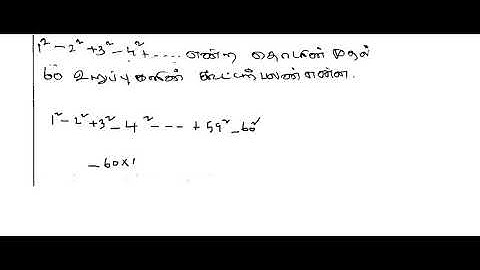 1² - 2² + 3² - 4² + ..... என்ற தொடரின் முதல்
60 உறுப்புகளின் கூட்டற்பலன் என்ன.
1² - 2² + 3² - 4² --- + 59² - 60²
- 60 × 1